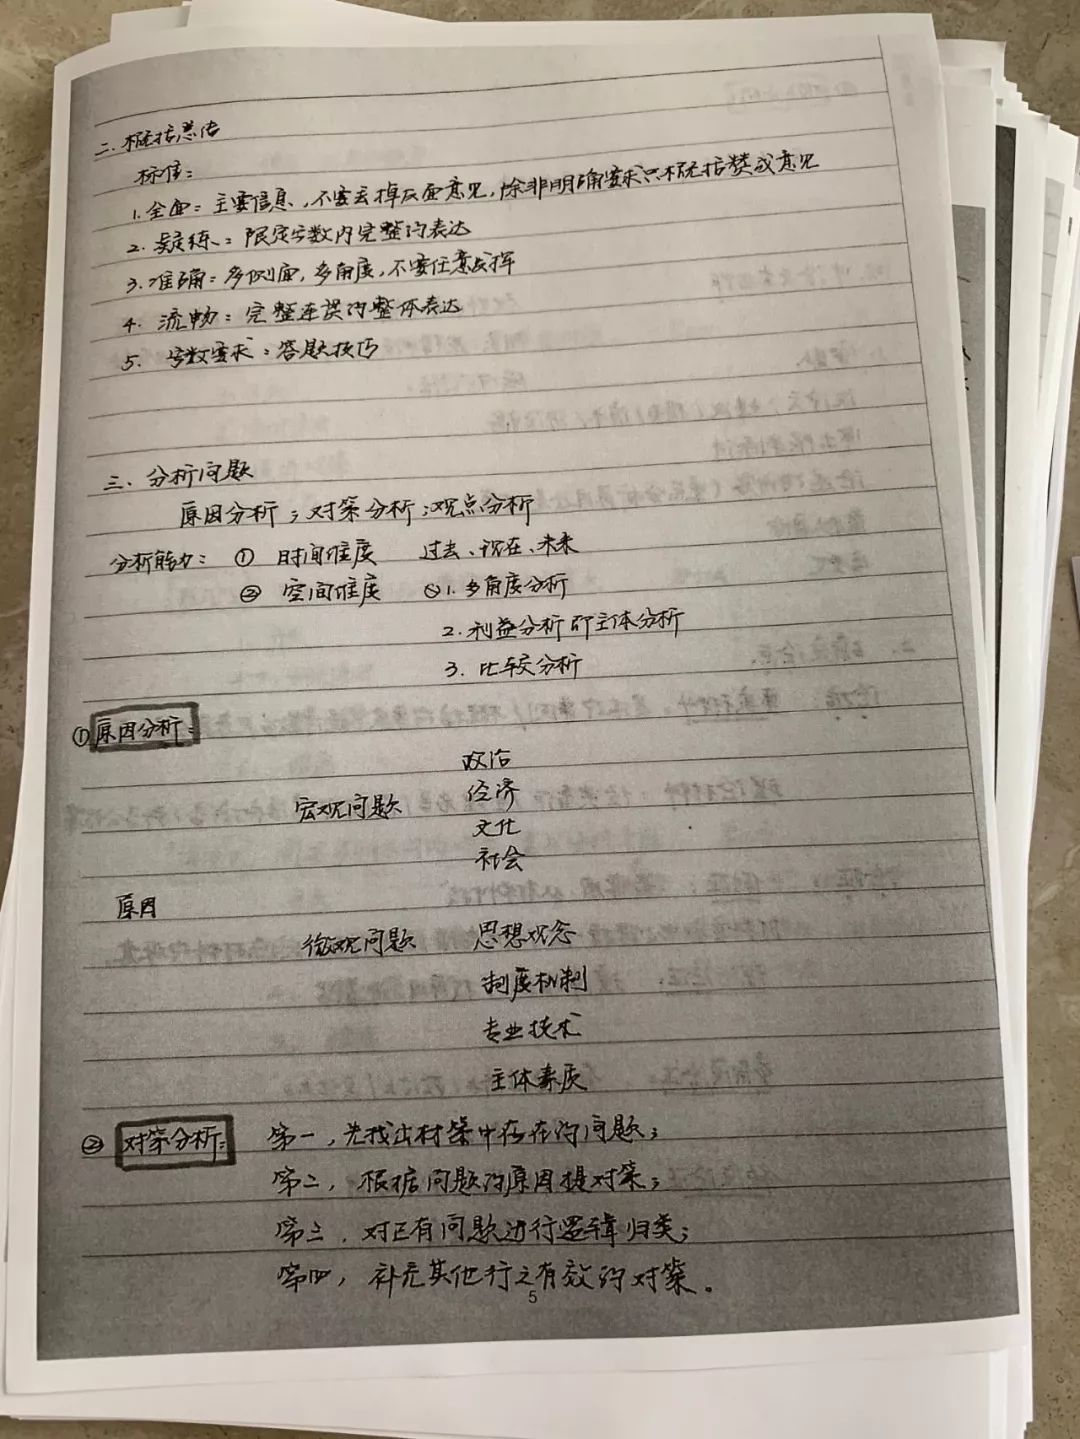 二.概括总结
标准：
1.全面：主要信息，不要去掉反面意见，除非明确要求只概括赞成意见
2.凝练：限定字数内完整的表达
3.准确：多侧面，多角度，不要任意发挥
4.流畅：完整连误的整体表达
5.字数要求：答题技巧
三.分析问题
原因分析；对策分析；观点分析
分析能力：① 时间维度 过去、现在、未来
② 空间维度 1.多角度分析
2.利益分析即主体分析
3.比较分析
①原因分析：
政治
宏观问题 经济
文化
社会
原因
微观问题 思想观念
制度机制
专业技术
主体素质
②对策分析：第一，先找出材案中存在的问题；
第二，根据问题的原因提对策；
第三，对已有问题进行逻辑归类；
第四，补充其他行之有效的对策。
5